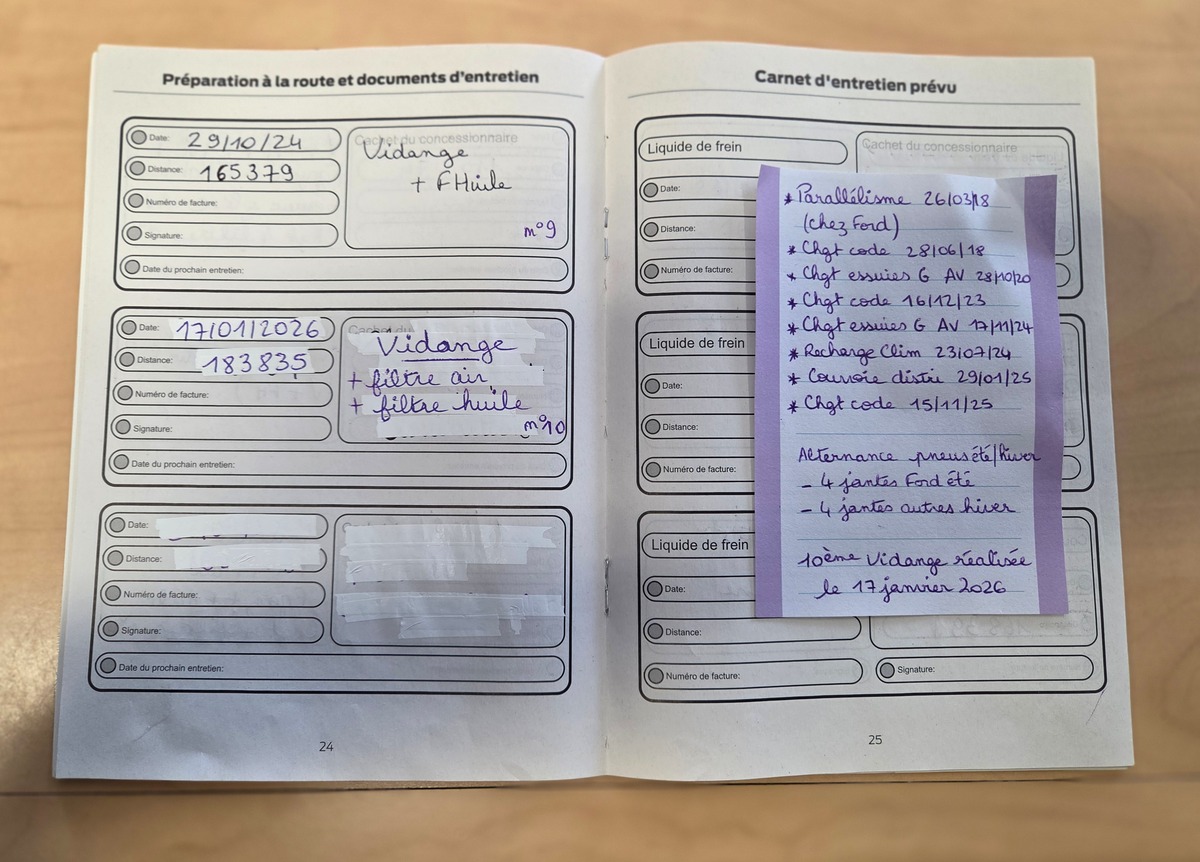 Préparation à la route et documents d'entretien
Date: 29/10/24
Cachet du concessionnaire
Vidange
Distance: 165379
+ FHuile
Numéro de facture:
Signature:
n°9
Date du prochain entretien:
Date: 17/01/2026
Cachet du
Vidange
Distance: 183835
+ filtre air
Numéro de facture:
+ filtre huile
Signature:
n°10
Date du prochain entretien:
Date:
Distance:
Numéro de facture:
Signature:
Date du prochain entretien:
24
Carnet d'entretien prévu
Liquide de frein
Cachet du concessionnaire
Date:
Distance:
Numéro de facture:
Liquide de frein
Date:
Distance:
Numéro de facture:
Liquide de frein
Date:
Distance:
Numéro de facture:
Signature:
* Parallélisme 26/03/18
(chez Ford)
* Chgt code 28/06/18
* Chgt essuies G AV 28/10/20
* Chgt code 16/12/23
* Chgt essuies G AV 17/11/24
* Recharge Clim 23/07/24
* Courroie distri 29/01/25
* Chgt code 15/11/25
Alternance pneus été/hiver
- 4 jantes Ford été
- 4 jantes autres hiver
10ème Vidange réalisée
le 17 janvier 2026
25